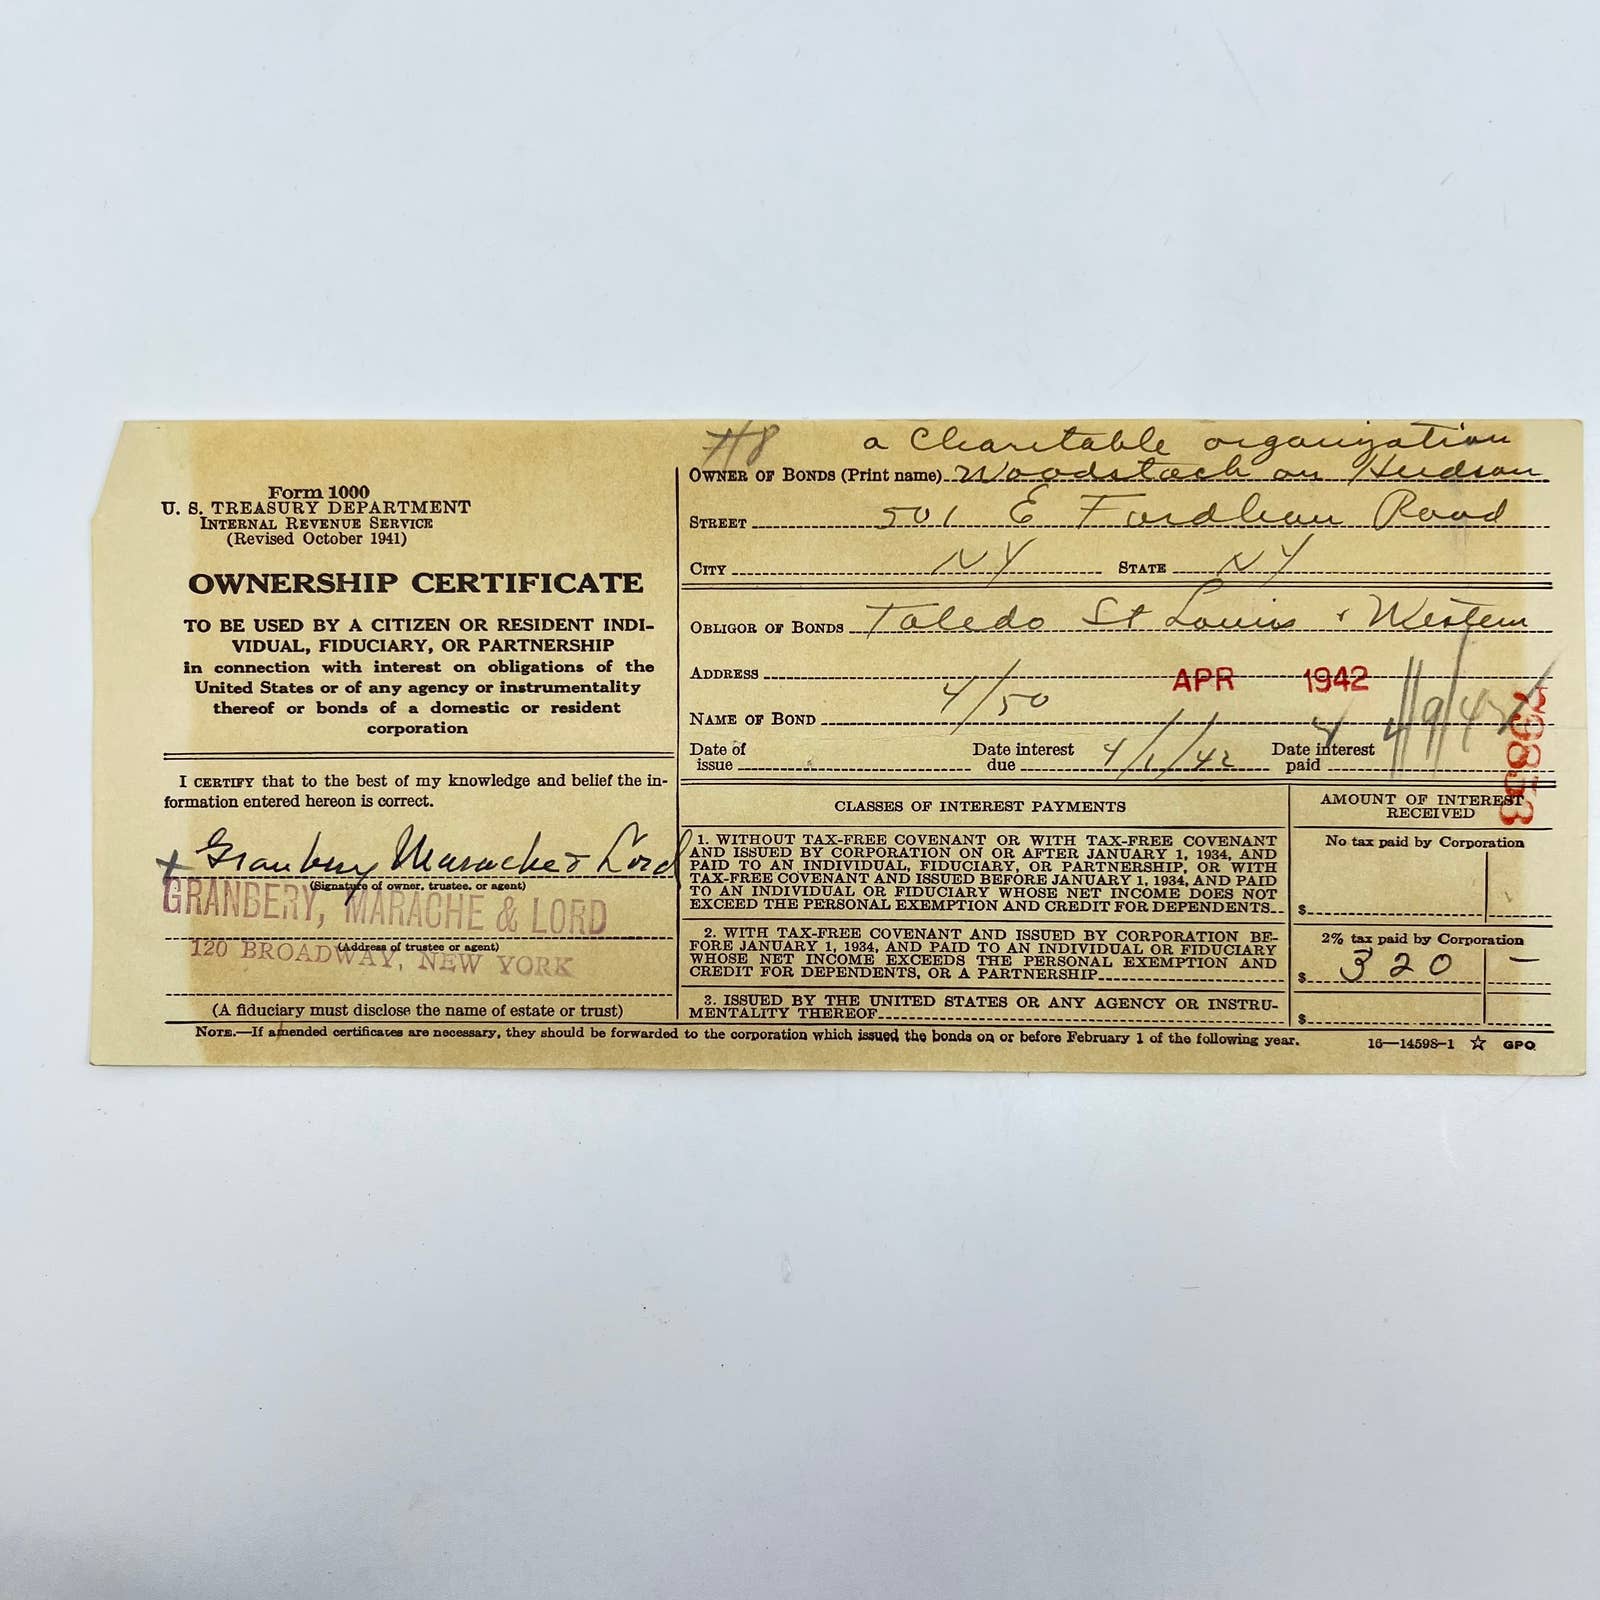 Form 1000
U. S. TREASURY DEPARTMENT
INTERNAL REVENUE SERVICE
(Revised October 1941)
OWNERSHIP CERTIFICATE
TO BE USED BY A CITIZEN OR RESIDENT INDI-
VIDUAL, FIDUCIARY, OR PARTNERSHIP
in connection with interest on obligations of the
United States or of any agency or instrumentality
thereof or bonds of a domestic or resident
corporation
I CERTIFY that to the best of my knowledge and belief the in-
formation entered hereon is correct.
Granbery Marache & Lord
(Signature of owner, trustee, or agent)
GRANBERY, MARACHE & LORD
(Address of trustee or agent)
120 BROADWAY, NEW YORK
(A fiduciary must disclose the name of estate or trust)
#8 a Charitable organization
OWNER OF BONDS (Print name) Woodstock on Hudson
STREET 501 E Fordham Road
CITY NY STATE NY
OBLIGOR OF BONDS Toledo St Louis & Western
ADDRESS
APR 1942
NAME OF BOND 4/50
Date of issue Date interest due 4/1/42 Date interest paid
79853
CLASSES OF INTEREST PAYMENTS
AMOUNT OF INTEREST RECEIVED
1. WITHOUT TAX-FREE COVENANT OR WITH TAX-FREE COVENANT
AND ISSUED BY CORPORATION ON OR AFTER JANUARY 1, 1934, AND
PAID TO AN INDIVIDUAL, FIDUCIARY, OR PARTNERSHIP, OR WITH
TAX-FREE COVENANT AND ISSUED BEFORE JANUARY 1, 1934, AND PAID
TO AN INDIVIDUAL OR FIDUCIARY WHOSE NET INCOME DOES NOT
EXCEED THE PERSONAL EXEMPTION AND CREDIT FOR DEPENDENTS
No tax paid by Corporation
$
2. WITH TAX-FREE COVENANT AND ISSUED BY CORPORATION BE-
FORE JANUARY 1, 1934, AND PAID TO AN INDIVIDUAL OR FIDUCIARY
WHOSE NET INCOME EXCEEDS THE PERSONAL EXEMPTION AND
CREDIT FOR DEPENDENTS, OR A PARTNERSHIP
2% tax paid by Corporation
$ 320 –
3. ISSUED BY THE UNITED STATES OR ANY AGENCY OR INSTRU-
MENTALITY THEREOF
$
NOTE.—If amended certificates are necessary, they should be forwarded to the corporation which issued the bonds on or before February 1 of the following year.
16—14598-1 ☆ GPO